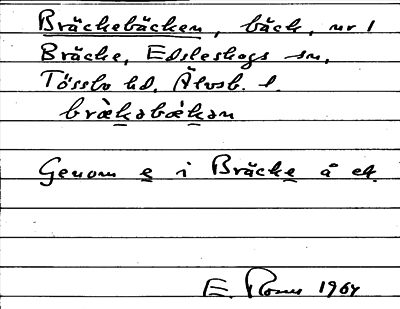 Bräckebäcken, bäck, nr 1
Bräcke, Edsleskogs sn,
Tössbo hd, Älvsb. l.
brækəbækən
Genom e i Bräcke ä ek.
E. 1964